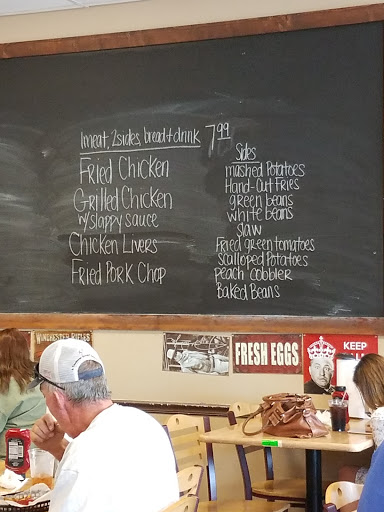 1 meat, 2 sides, bread + drink 7.99
Fried Chicken
Grilled Chicken
w/ slappy sauce
Chicken Livers
Fried Pork Chop
Sides
mashed Potatoes
Hand-Cut Fries
green beans
white beans
slaw
Fried green tomatoes
scalloped Potatoes
peach cobbler
Baked Beans
WINCHESTER RIFLES
FRESH EGGS
KEEP